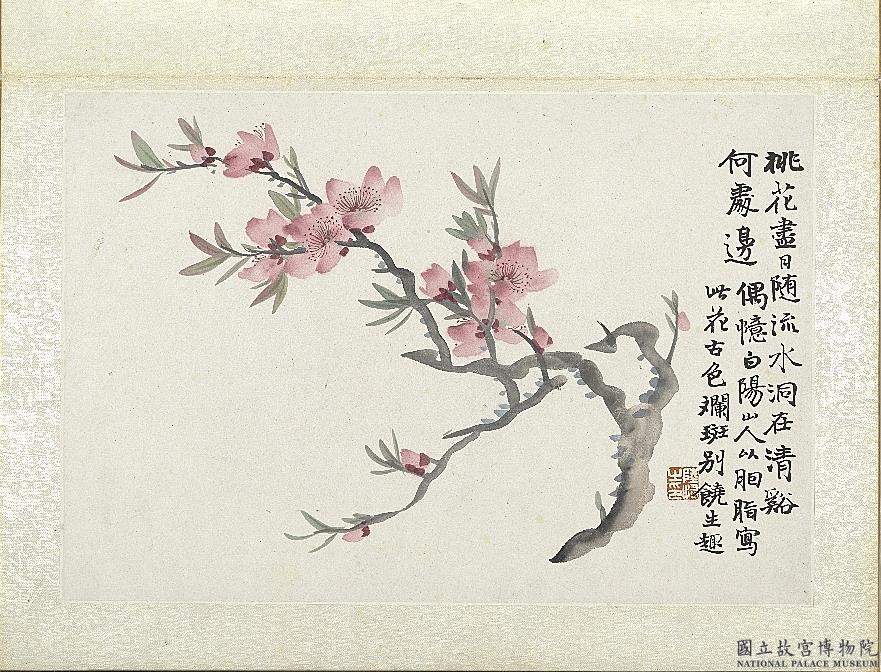 桃花盡日随流水洞在清谿
何處邊 偶憶白陽山人以胭脂寫
此花古色斕斑别饒生趣
國立故宮博物院
NATIONAL PALACE MUSEUM